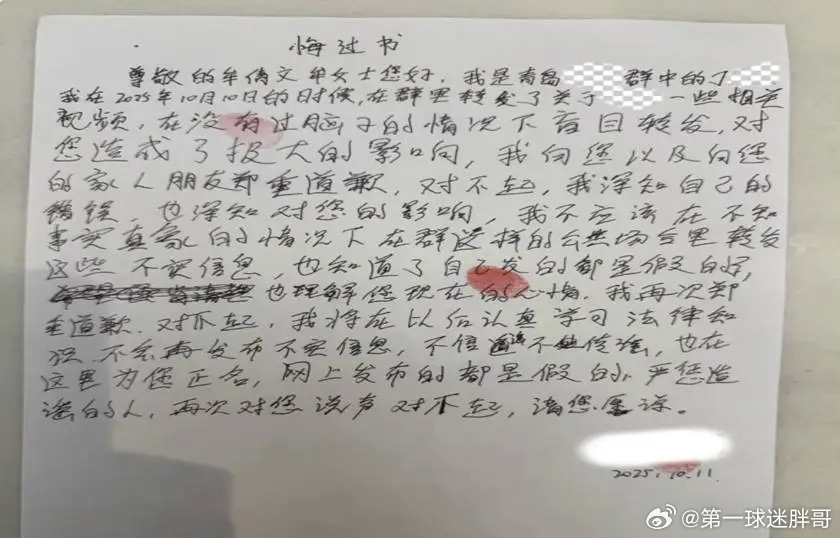 悔过书
尊敬的牟倩文牟女士您好，我是青岛 群中的丁
我在2025年10月10日的时候，在群里转发了关于 一些相关
视频，在没有过脑子的情况下盲目转发，对
您造成了极大的影响，我向您以及向您
的家人朋友郑重道歉，对不起，我深知自己的
错误，也深知对您的影响，我不应该在不知
事实真象的情况下在群这样的公共场合里转发
这些不实信息，也知道了自己发的都是假的，
也理解您现在的心情，我再次郑
重道歉，对不起，我将在以后认真学习法律知
识，不会再发布不实信息，不信谣不传谣，也在
这里为您正名，网上发布的都是假的，严惩造
谣的人，再次对您说声对不起，请您原谅。
2025.10.11
@第一球迷胖哥